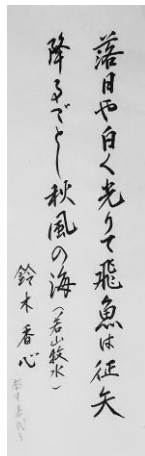 落日や白く光りて飛魚は征矢
降るごとし秋風の海（若山牧水）
鈴木香心